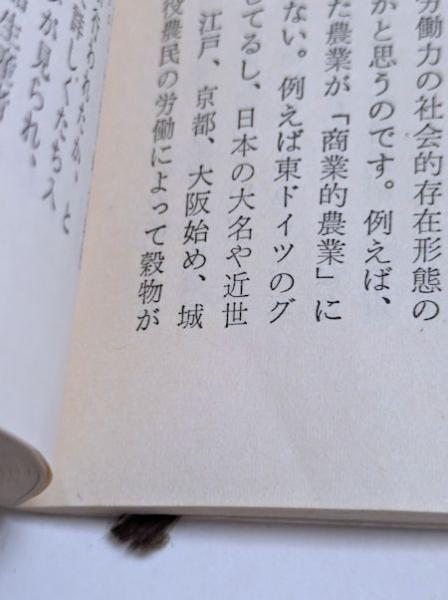 労働力の社会的存在形態の
かと思うのです。例えば、
た農業が「商業的農業」に
ない。例えば東ドイツのグ
してるし、日本の大名や近世
江戸、京都、大阪始め、城
役農民の労働によって穀物が
が見られ、